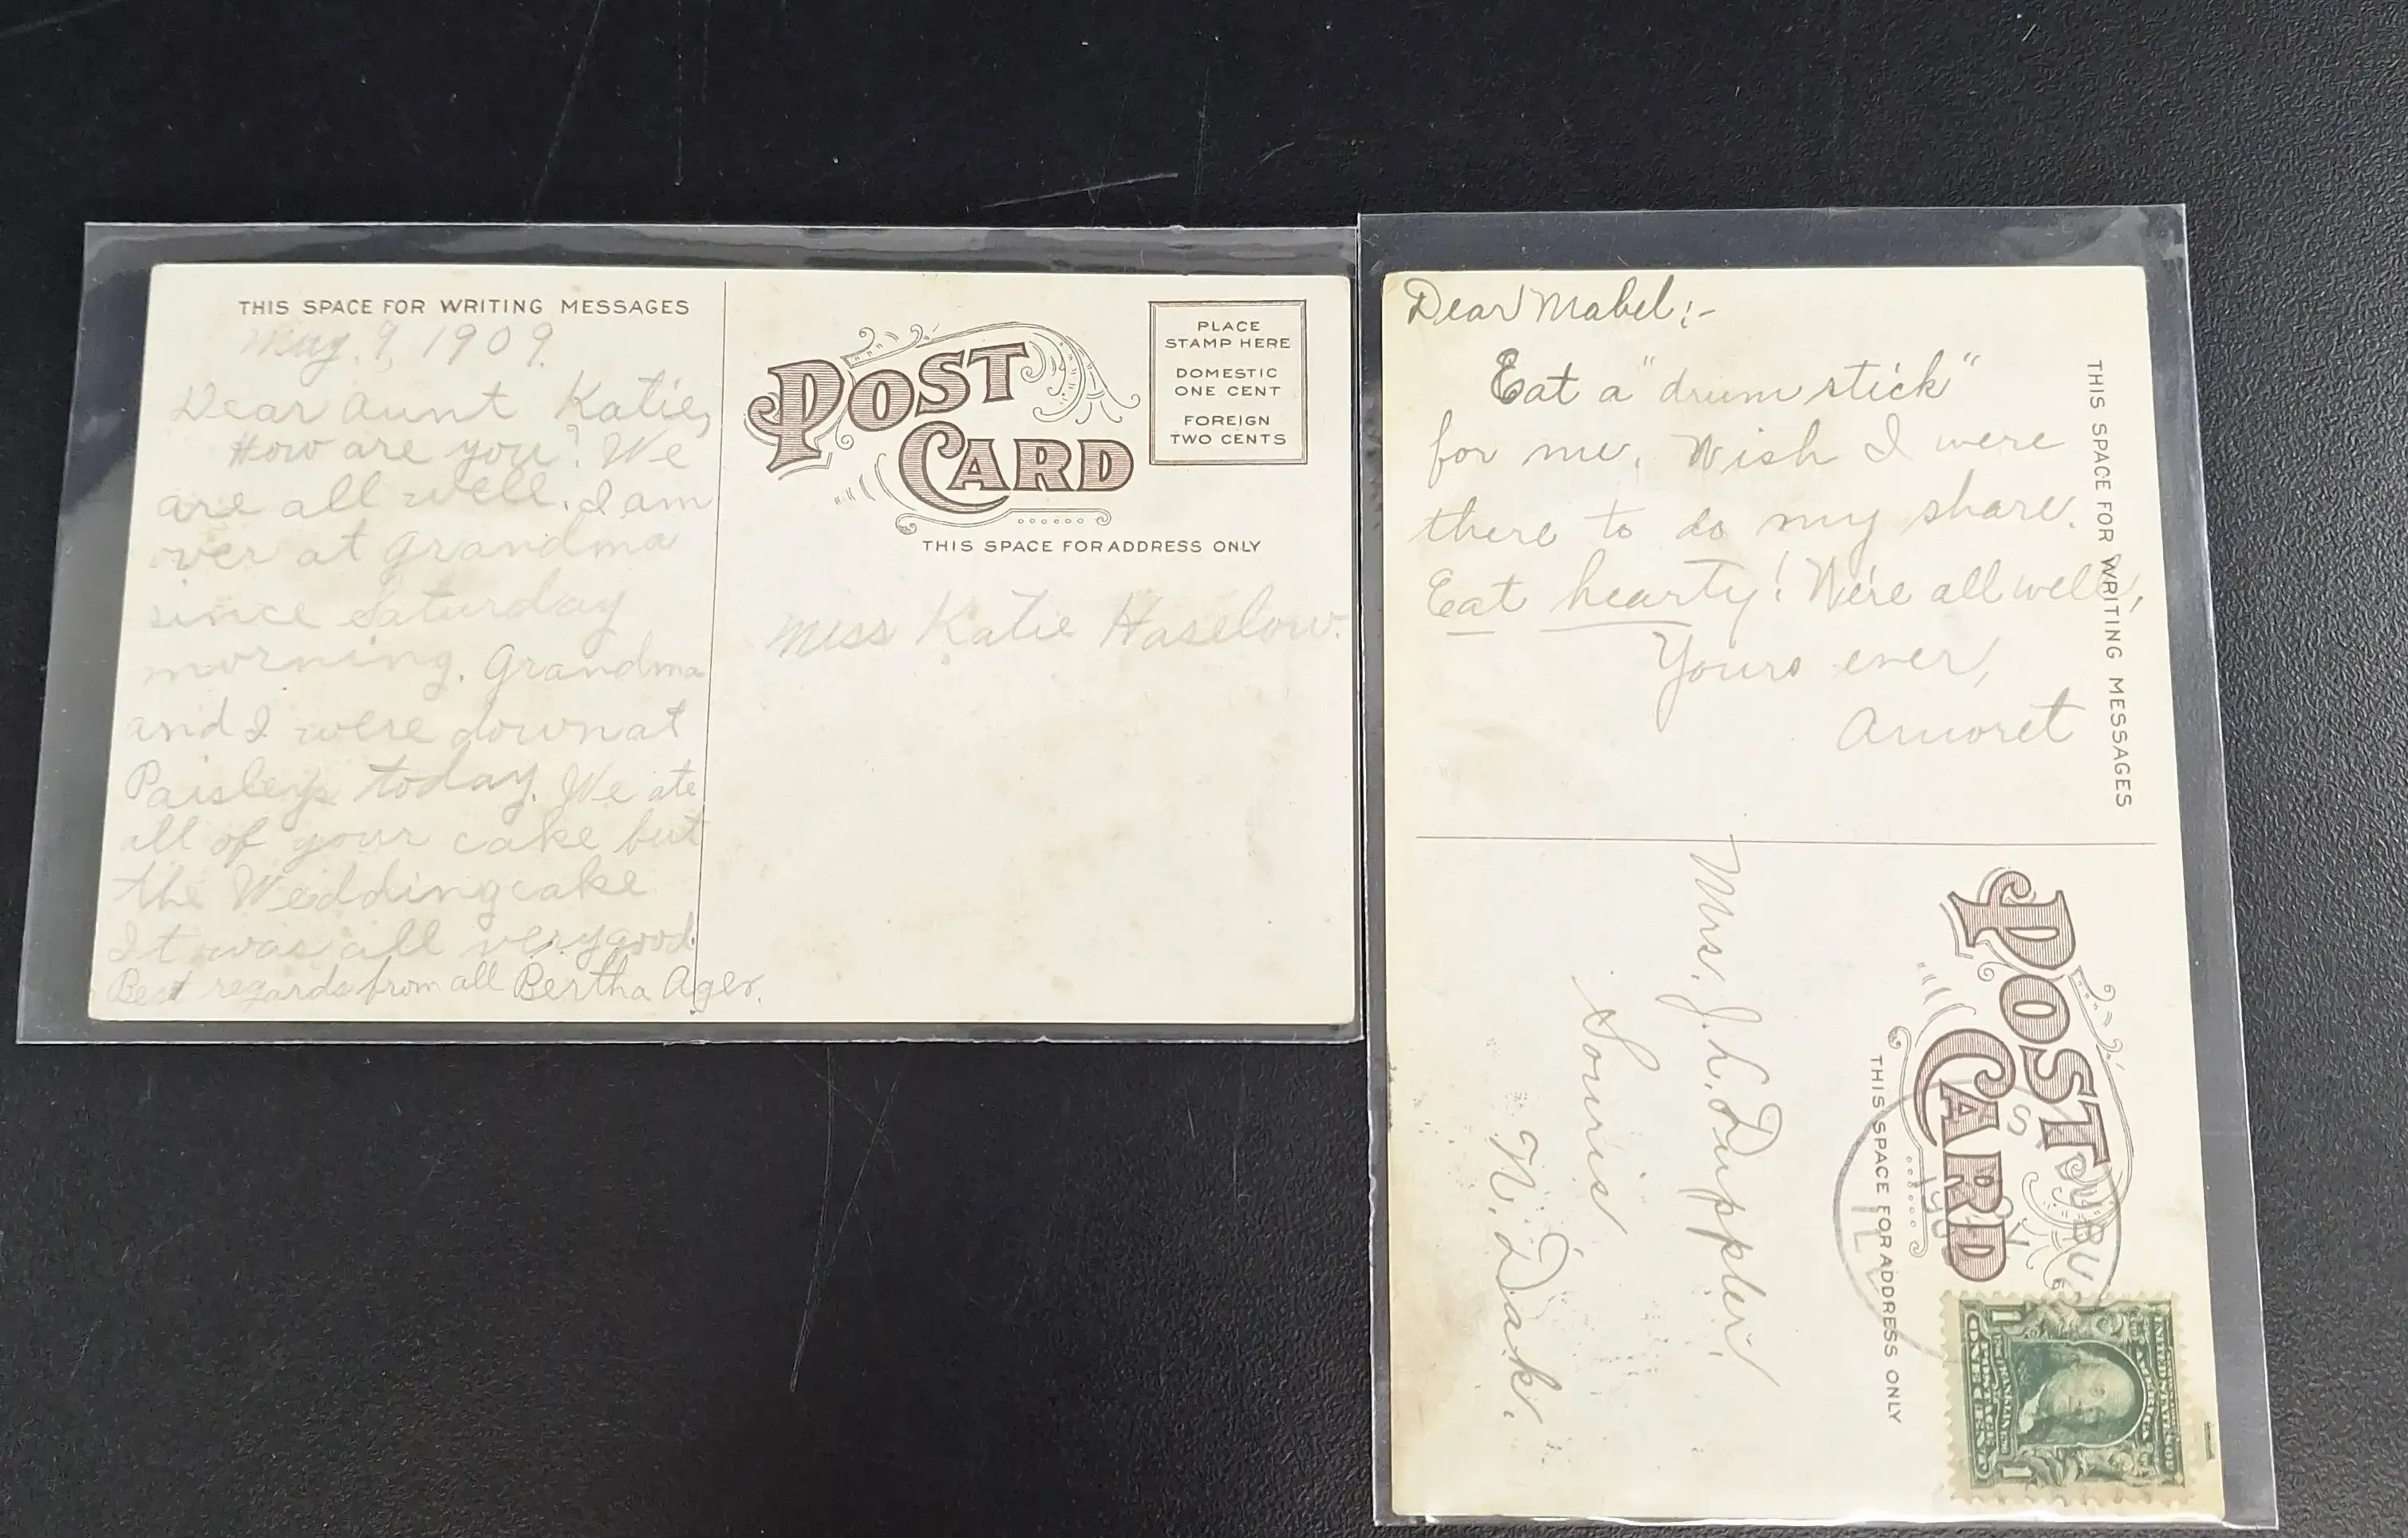 THIS SPACE FOR WRITING MESSAGES
May. 9, 1909.
Dear Aunt Katie,
How are you? We
are all well. I am
over at Grandma
since Saturday
morning. Grandma
and I were down at
Paisleys today. We ate
all of your cake but
the Wedding cake
It was all very good.
Best regards from all Bertha Ager.
POST
CARD
THIS SPACE FOR ADDRESS ONLY
PLACE
STAMP HERE
DOMESTIC
ONE CENT
FOREIGN
TWO CENTS
Miss Katie Haselow.
Dear Mabel:-
Eat a "drum stick"
for me. Wish I were
there to do my share.
Eat hearty! We're all well,
Yours ever,
Amoret
THIS SPACE FOR WRITING MESSAGES
POST
CARD
THIS SPACE FOR ADDRESS ONLY
Mrs. J. L. Duppler,
Souris
N. Dak.
1
1